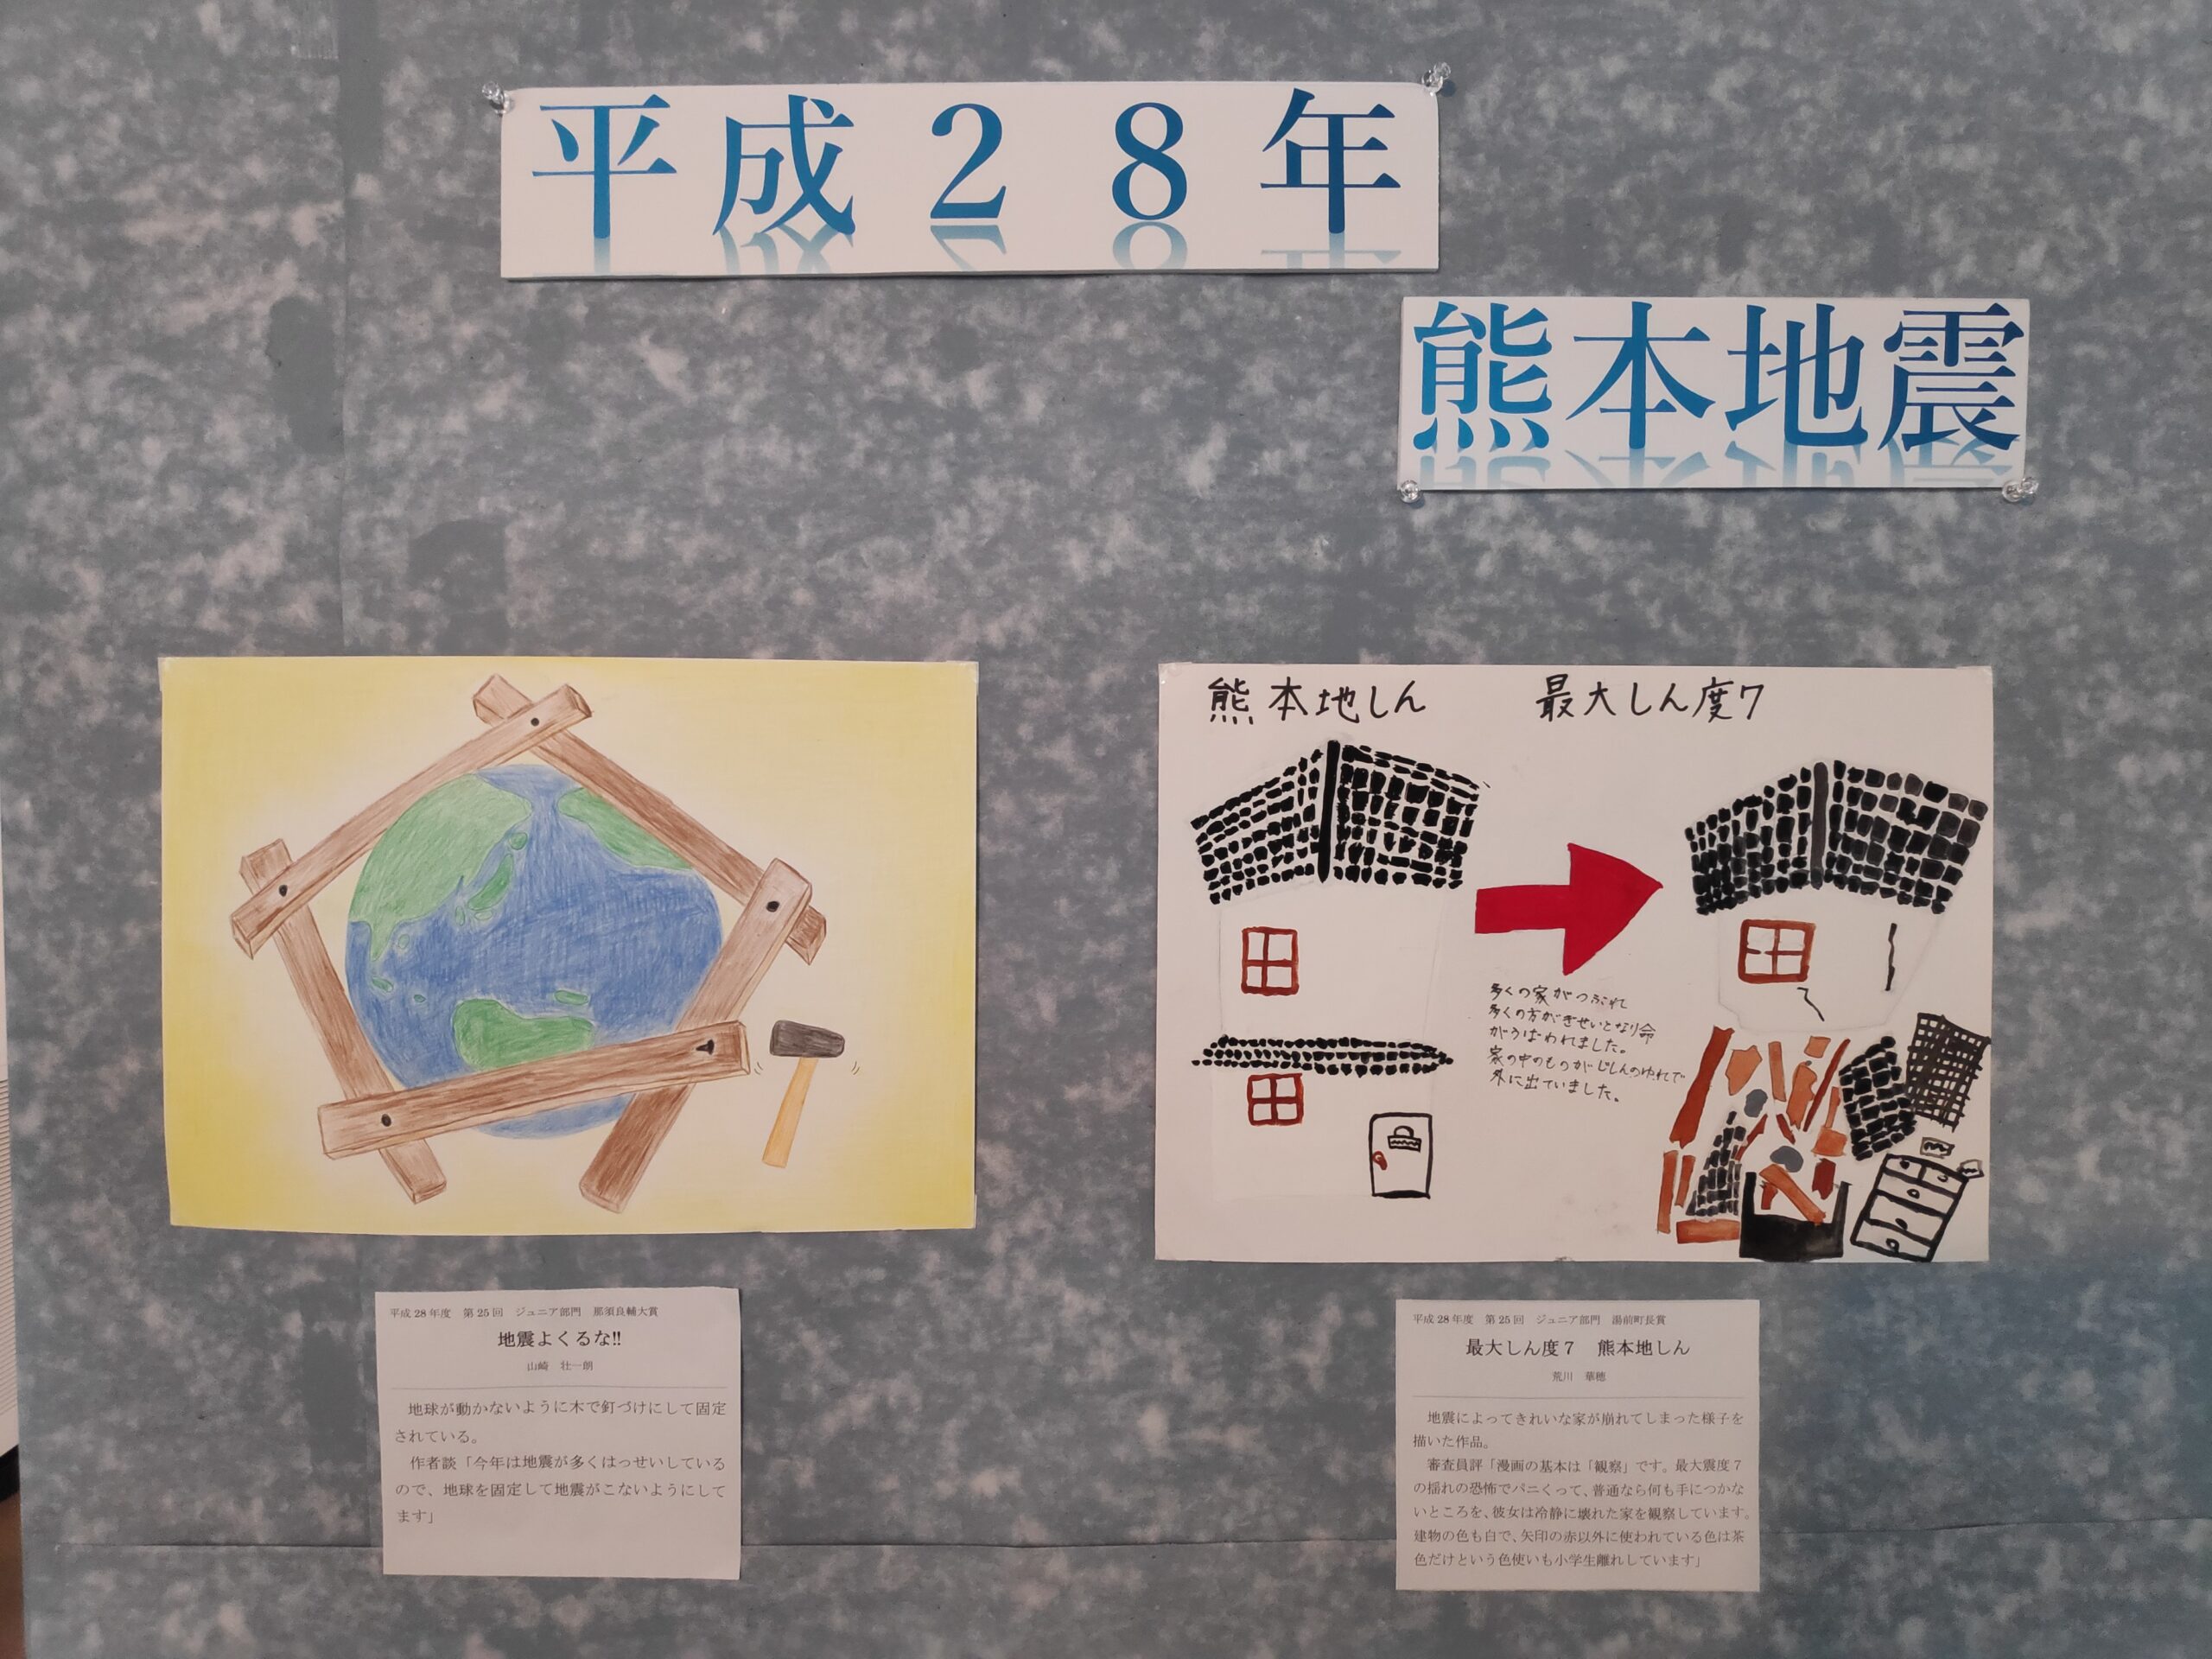 平成２８年
熊本地震
熊本地しん　最大しん度7
多くの家がつぶれて
多くの方がぎせいとなり命
がうばわれました。
家の中のものがじしんのゆれで
外に出ていました。
平成28年度　第25回　ジュニア部門　那須良輔大賞
地震よくるな!!
山崎　壮一朗
地球が動かないように木で釘づけにして固定
されている。
作者談「今年は地震が多くはっせいしている
ので、地球を固定して地震がこないようにして
ます」
平成28年度　第25回　ジュニア部門　湯前町長賞
最大しん度７　熊本地しん
荒川　華穂
地震によってきれいな家が崩れてしまった様子を
描いた作品。
審査員評「漫画の基本は「観察」です。最大震度７
の揺れの恐怖でパニくって、普通なら何も手につかな
いところを、彼女は冷静に壊れた家を観察しています。
建物の色も白で、矢印の赤以外に使われている色は茶
色だけという色使いも小学生離れしています」